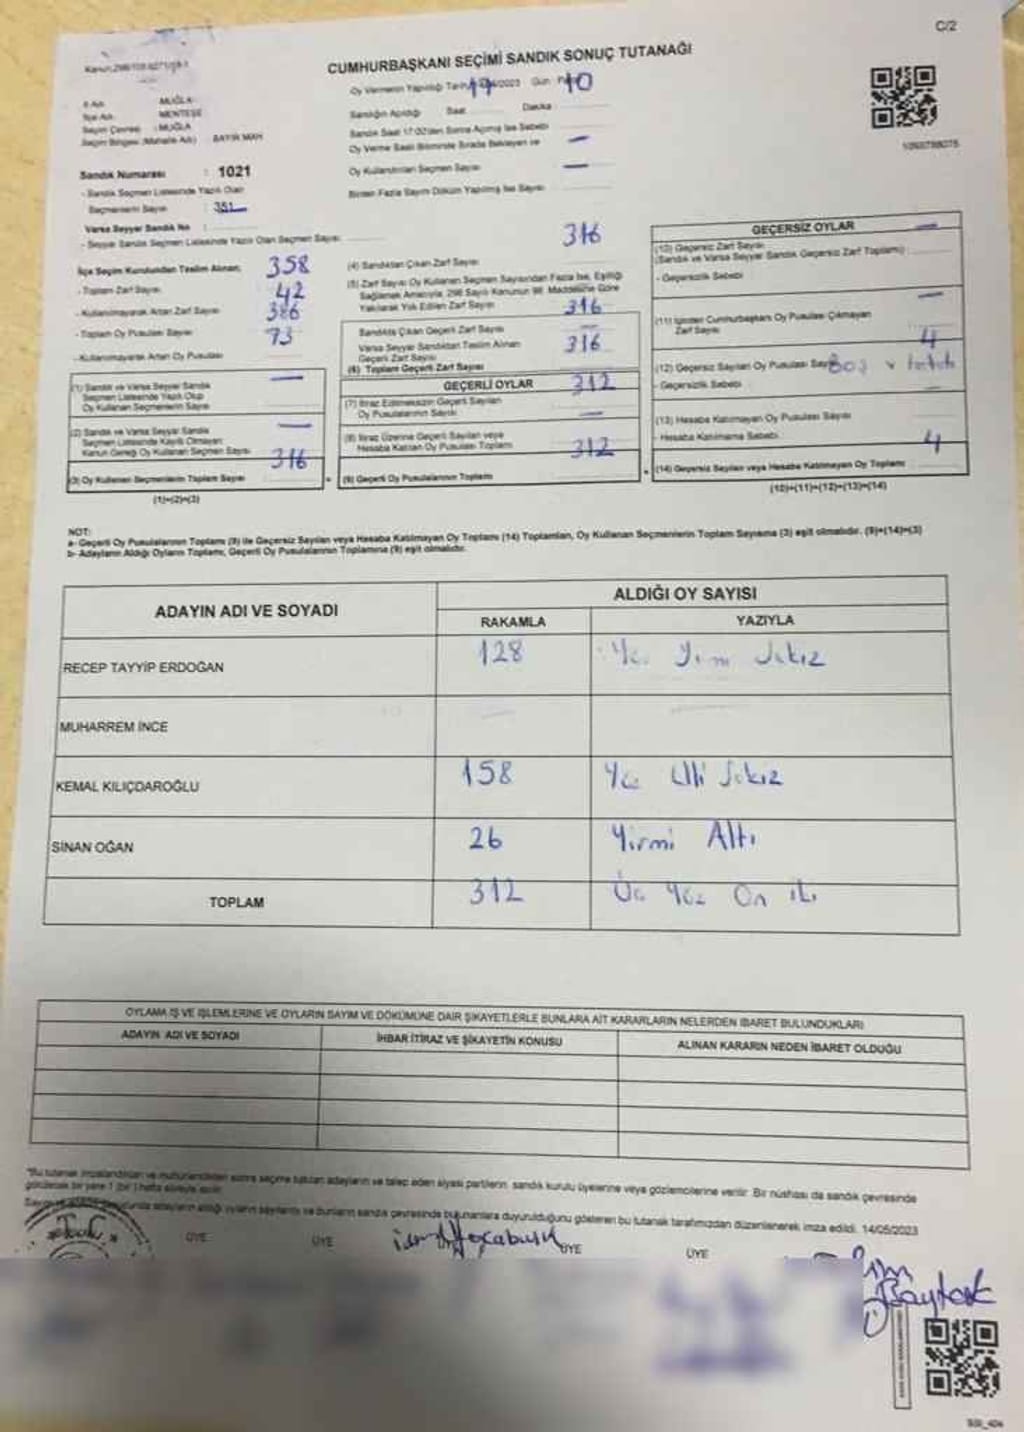 C/2
CUMHURBAŞKANI SEÇİMİ SANDIK SONUÇ TUTANAĞI
Oy Vermenin Yapıldığı Gün
İl Adı MUĞLA
İlçe Adı MENTEŞE
Seçim Çevresi : MUĞLA
Seçim Bölgesi (Mahalle Adı) BAYIR MAH
Sandığın Açıldığı Saat Dakika
Sandık Saat 17:00'den Sonra Açılmış İse Sebebi
Oy Verme Saati Bitiminde Sırada Bekleyen ve —
Oy Kullandırılan Seçmen Sayısı —
Birden Fazla Sayım Döküm Yapılmış İse Sayısı
Sandık Numarası : 1021
- Sandık Seçmen Listesinde Yazılı Olan
Seçmenlerin Sayısı : 351
Varsa Seyyar Sandık No :
- Seyyar Sandık Seçmen Listesinde Yazılı Olan Seçmen Sayısı
İlçe Seçim Kurulundan Teslim Alınan; 358
- Toplam Zarf Sayısı 42
- Kullanılmayarak Artan Zarf Sayısı 386
- Toplam Oy Pusulası Sayısı 73
- Kullanılmayarak Artan Oy Pusulası
(1) Sandık ve Varsa Seyyar Sandık —
Seçmen Listesinde Yazılı Olup
Oy Kullanan Seçmenlerin Sayısı
(2) Sandık ve Varsa Seyyar Sandık —
Seçmen Listesinde Kayıtlı Olmayan
Kanun Gereği Oy Kullanan Seçmen Sayısı 316
(3) Oy Kullanan Seçmenlerin Toplam Sayısı
(1)+(2)=(3)
316
(4) Sandıktan Çıkan Zarf Sayısı
(5) Zarf Sayısı Oy Kullanan Seçmen Sayısından Fazla İse, Eşitliği
Sağlamak Amacıyla, 298 Sayılı Kanunun 98. Maddesine Göre
Yakılarak Yok Edilen Zarf Sayısı 316
Sandıkta Çıkan Geçerli Zarf Sayısı —
Varsa Seyyar Sandıktan Teslim Alınan 316
Geçerli Zarf Sayısı
(6) Toplam Geçerli Zarf Sayısı
GEÇERLİ OYLAR 312
(7) İtiraz Edilmeksizin Geçerli Sayılan
Oy Pusulalarının Sayısı —
(8) İtiraz Üzerine Geçerli Sayılan veya
Hesaba Katılan Oy Pusulası Toplamı 312
(9) Geçerli Oy Pusulalarının Toplamı
GEÇERSİZ OYLAR —
(10) Geçersiz Zarf Sayısı
(Sandık ve Varsa Seyyar Sandık Geçersiz Zarf Toplamı)
- Geçersizlik Sebebi
—
(11) İçinden Cumhurbaşkanı Oy Pusulası Çıkmayan
Zarf Sayısı 4
(12) Geçersiz Sayılan Oy Pusulası Sayısı Boş
- Geçersizlik Sebebi —
(13) Hesaba Katılmayan Oy Pusulası Sayısı
- Hesaba Katılmama Sebebi 4
(14) Geçersiz Sayılan veya Hesaba Katılmayan Oy Toplamı
(10)+(11)+(12)+(13)=(14)
NOT:
a- Geçerli Oy Pusulalarının Toplamı (9) ile Geçersiz Sayılan veya Hesaba Katılmayan Oy Toplamı (14) Toplamları, Oy Kullanan Seçmenlerin Toplam Sayısına (3) eşit olmalıdır. (9)+(14)=(3)
b- Adayların Aldığı Oyların Toplamı, Geçerli Oy Pusulalarının Toplamına (9) eşit olmalıdır.
ADAYIN ADI VE SOYADI ALDIĞI OY SAYISI
RAKAMLA YAZIYLA
RECEP TAYYİP ERDOĞAN 128 Yüz Yirmi Sekiz
MUHARREM İNCE — —
KEMAL KILIÇDAROĞLU 158 Yüz Elli Sekiz
SİNAN OĞAN 26 Yirmi Altı
TOPLAM 312 Üç Yüz On iki
OYLAMA İŞ VE İŞLEMLERİNE VE OYLARIN SAYIM VE DÖKÜMÜNE DAİR ŞİKAYETLERLE BUNLARA AİT KARARLARIN NELERDEN İBARET BULUNDUKLARI
ADAYIN ADI VE SOYADI İHBAR İTİRAZ VE ŞİKAYETİN KONUSU ALINAN KARARIN NEDEN İBARET OLDUĞU
"Bu tutanak imzalandıktan ve mühürlendikten sonra seçime katılan adayların ve talep eden siyasi partilerin, sandık kurulu üyelerine veya gözlemcilerine verilir. Bir nüshası da sandık çevresinde
görülecek bir yere 1 (bir) hafta süreyle asılır.
adayların aldığı oyların sayılarını ve bunların sandık çevresinde bulunanlara duyurulduğunu gösteren bu tutanak tarafımızdan düzenlenerek imza edildi. 14/05/2023
ÜYE ÜYE ÜYE ÜYE
Baytok